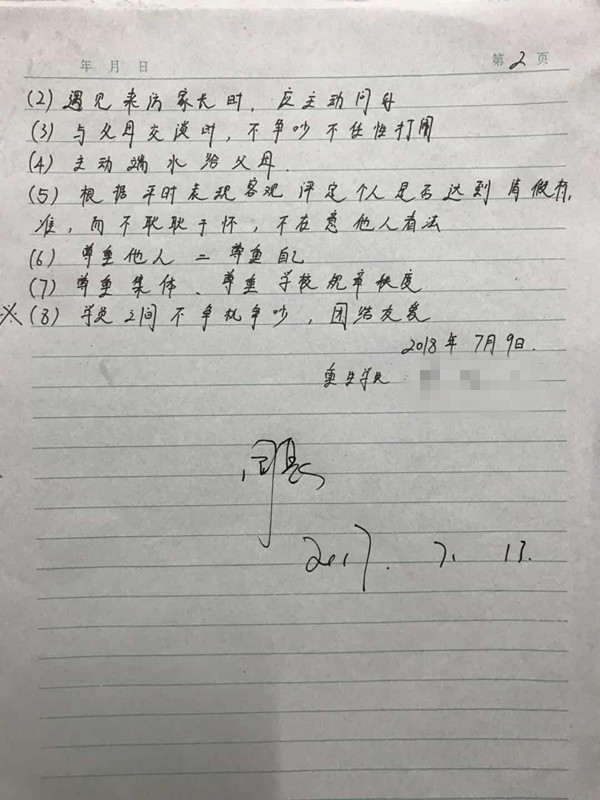 年 月 日 第2页
(2) 遇见来访家长时，应主动问好
(3) 与父母交谈时，不争吵不任性打闹
(4) 主动端水给父母.
(5) 根据平时表现客观评定个人是否达到肖假标
准，而不耿耿于怀，不在意他人看法
(6) 尊重他人 = 尊重自己
(7) 尊重集体、尊重学校规章秩度
※(8) 学员之间不争执争吵，团结友爱
2018年7月9日.
重生学员
2017. 7. 13.